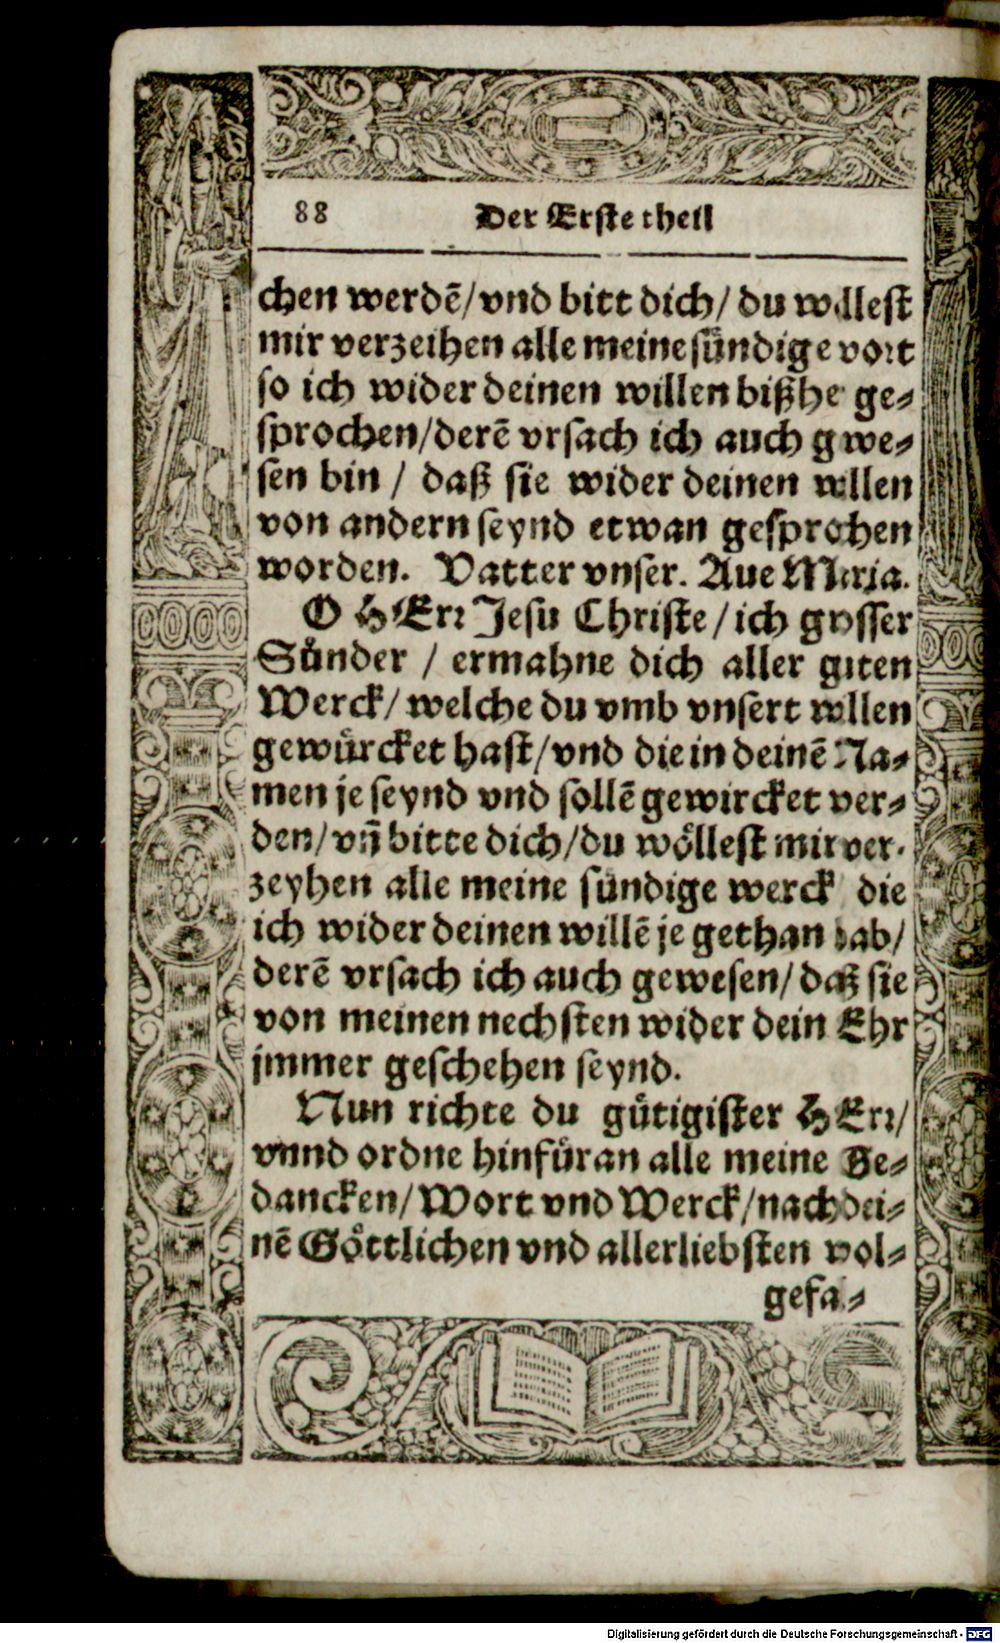 88 Der Erste theil
chen werdẽ/vnd bitt dich/ du wöllest
mir verzeihen alle meine sündige wort
so ich wider deinen willen bißher ge⸗
sprochen/derẽ vrsach ich auch gewe⸗
sen bin / daß sie wider deinen willen
von andern seynd etwan gesprochen
worden. Vatter vnser. Aue Maria.
O HErr Jesu Christe/ich grosser
Sünder / ermahne dich aller guten
Werck/ welche du vmb vnsert willen
gewürcket hast/vnd die in deinẽ Na⸗
men je seynd vnd sollẽ gewircket wer⸗
den/vñ bitte dich/du wöllest mir ver⸗
zeyhen alle meine sündige werck die
ich wider deinen willẽ je gethan hab/
derẽ vrsach ich auch gewesen/ daß sie
von meinen nechsten wider dein Ehr
jmmer geschehen seynd.
Nun richte du gütigister HErr/
vnnd ordne hinfüran alle meine Ge⸗
dancken/Wort vnd Werck/nach dei⸗
nẽ Göttlichen vnd allerliebsten wol⸗
gefal⸗
Digitalisierung gefördert durch die Deutsche Forschungsgemeinschaft - DFG